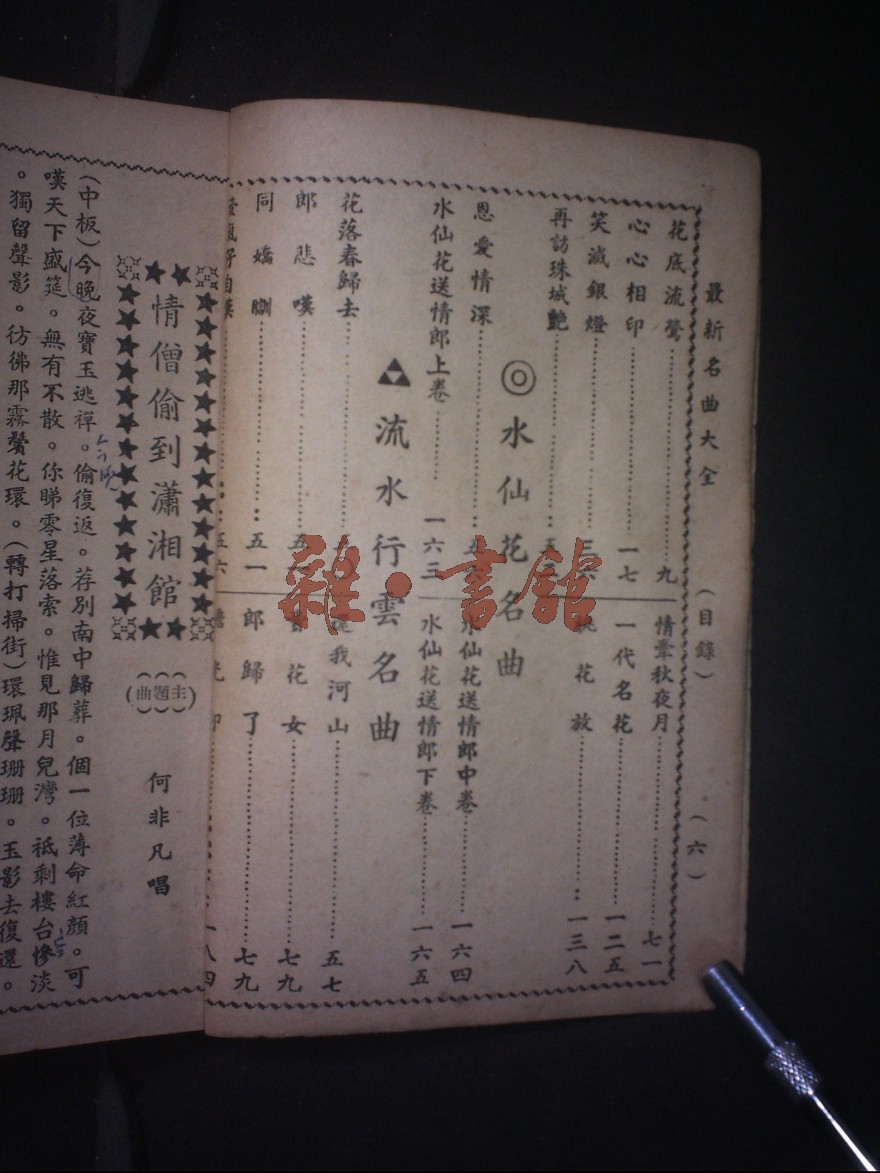 最新名曲大全
(目錄)
(六)
花底流鶯 九
心心相印 一七
笑滅銀燈
再訪珠城艷
情牽秋夜月 七一
一代名花 一二五
桃花放 一三八
◎水仙花名曲
恩愛情深
水仙花送情郎上卷 一六三
水仙花送情郎中卷 一六四
水仙花送情郎下卷 一六五
流水行雲名曲
花落春歸去
郎悲嘆
同嬌 五一
五六
還我河山 五七
花女 七九
郎歸了 七九
一八四
情僧偷到瀟湘館
(主題曲)
何非凡唱
(中板)今晚夜寶玉逃禪。偷復返。荐別南中歸葬。個一位薄命紅顏。可
嘆天下盛筵。無有不散。你睇零星落索。惟見那月兒灣。祗剩樓台慘淡
。獨留聲影。彷彿那霧鬢花環。(轉打掃街)環珮聲珊珊。玉影去復還。
雜·書館